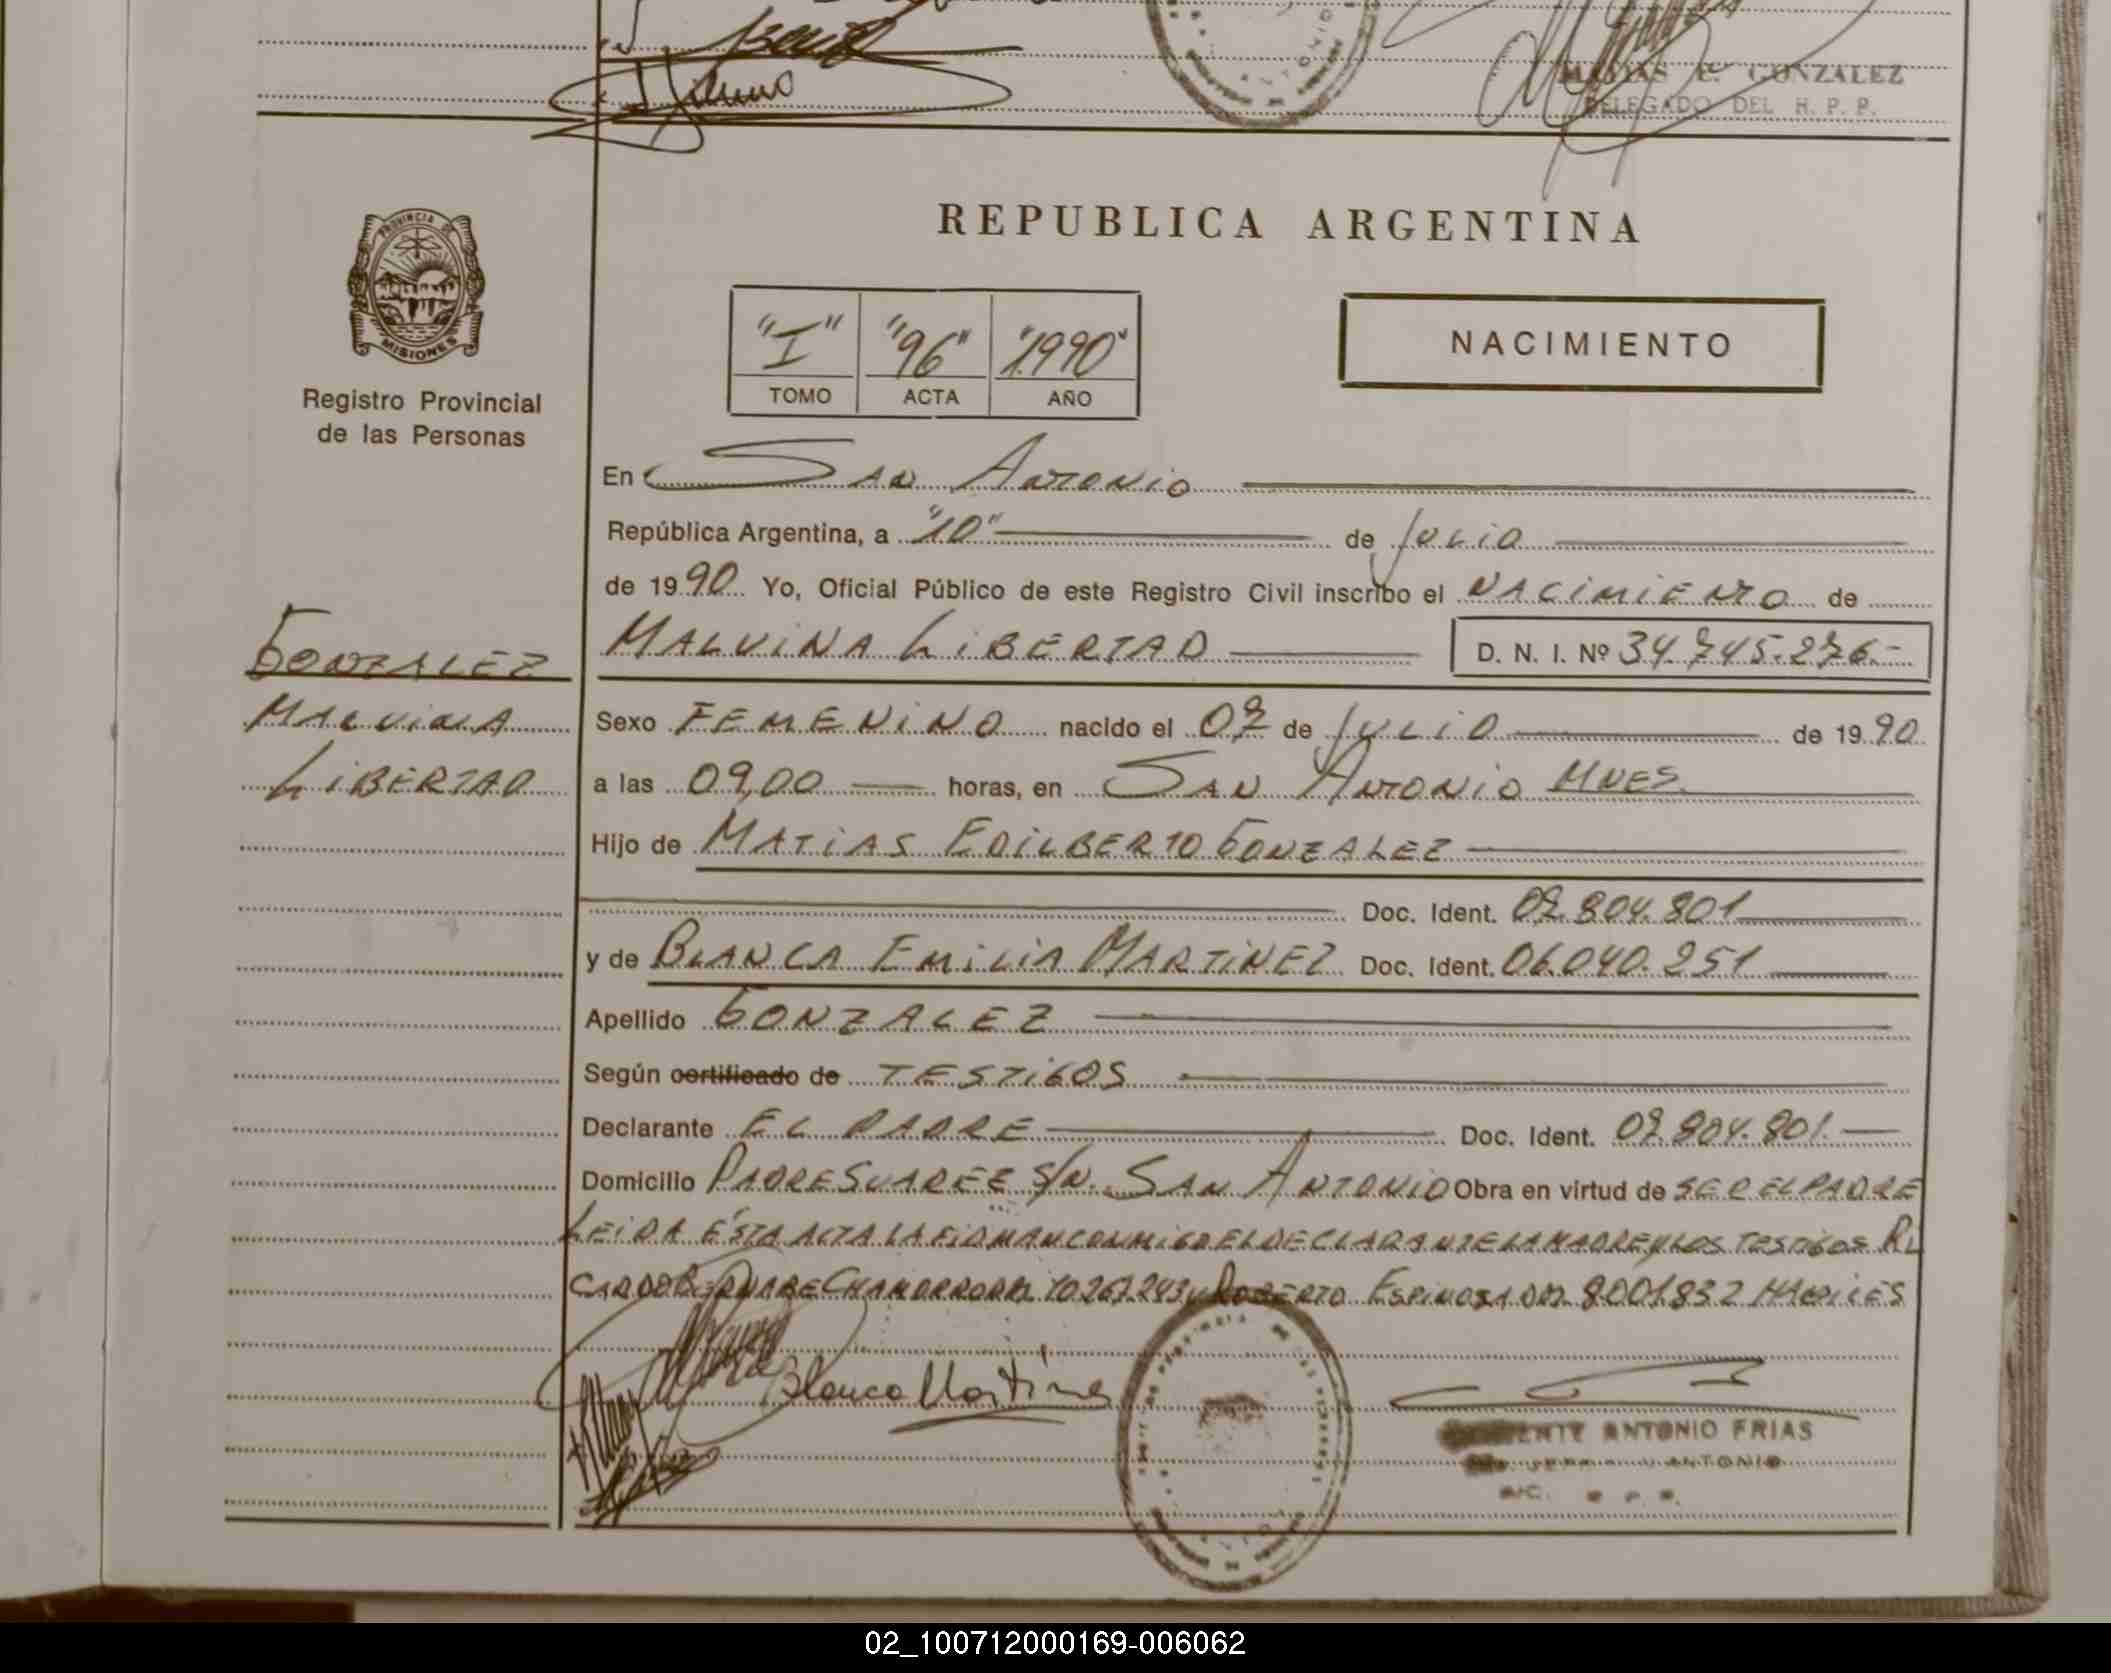 MATIAS E. GONZALEZ
DELEGADO DEL R. P. P.
PROVINCIA DE
MISIONES
Registro Provincial
de las Personas
REPUBLICA ARGENTINA
"I" "96" "1990"
TOMO ACTA AÑO
NACIMIENTO
En SAN ANTONIO
República Argentina, a "10" de JULIO
de 1990 Yo, Oficial Público de este Registro Civil inscribo el NACIMIENTO de
MALVINA LIBERTAD D. N. I. Nº 34.745.276.-
GONZALEZ
MALVINA
LIBERTAD
Sexo FEMENINO nacido el 07 de JULIO de 1990
a las 09,00 horas, en SAN ANTONIO MNES.
Hijo de MATIAS EDILBERTO GONZALEZ
Doc. Ident. 07.804.801
y de BLANCA EMILIA MARTINEZ Doc. Ident. 06.040.251
Apellido GONZALEZ
Según certificado de TESTIGOS
Declarante EL PADRE Doc. Ident. 07.804.801.
Domicilio PADRE SUAREZ S/N. SAN ANTONIO Obra en virtud de SER EL PADRE
LEIDA ÉSTA ACTA LA FIRMAN CONMIGO EL DECLARANTE LA MADRE Y LOS TESTIGOS RI
CARDO CHAMORRO 10.267.243 y ROBERTO ESPINOSA DNI 8001832 HABILES
Blanca Martinez
ANTONIO FRIAS
ANTONIO
02_100712000169-006062